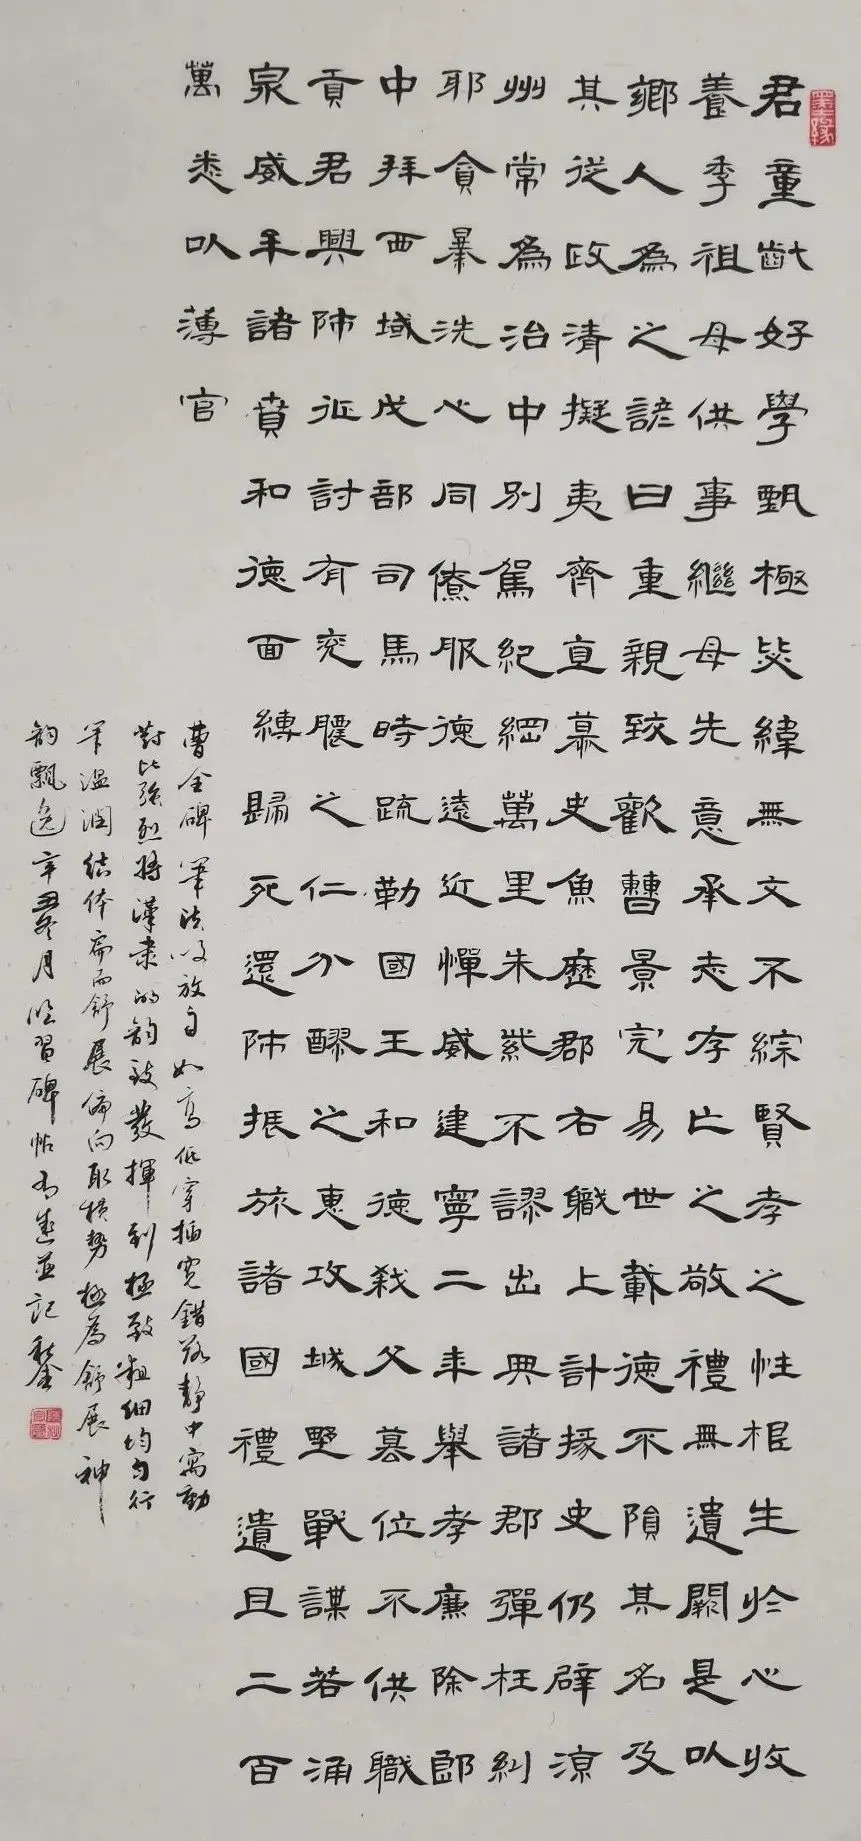 君童齔好學甄極毖緯無文不綜賢孝之性根生於心收
養季祖母供事繼母先意承志存亡之敬禮無遺闕是以
鄉人為之諺曰重親致歡曹景完易世載德不隕其名及
其從政清擬夷齊直慕史魚歷郡右職上計掾史仍辟涼
州常為治中別駕紀綱萬里朱紫不謬出典諸郡彈枉糾
邪貪暴洗心同僚服德遠近憚威建寧二年舉孝廉除郎
中拜西域戊部司馬時疏勒國王和德殺父篡位不供職
貢君興師征討有兗膿之仁分醪之惠攻城野戰謀若涌
泉威牟諸賁和德面縛歸死還師振旅諸國禮遺且二百
萬悉以薄官
曹全碑筆法收放自如高低穿插寬錯落靜中寓動
對比強烈將漢隸的韵致發揮到極致粗細均勻行
筆溫潤結体扁而舒展偏向取橫勢極為舒展神
韵飄逸辛丑冬月臨習碑帖並記